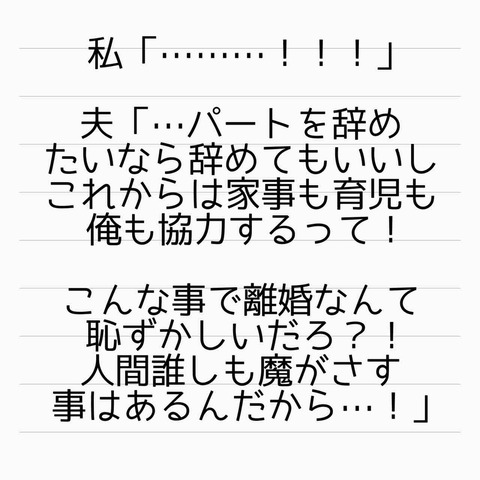 私「………！！！」
夫「…パートを辞め
たいなら辞めてもいいし
これからは家事も育児も
俺も協力するって！
こんな事で離婚なんて
恥ずかしいだろ？！
人間誰しも魔がさす
事はあるんだから…！」